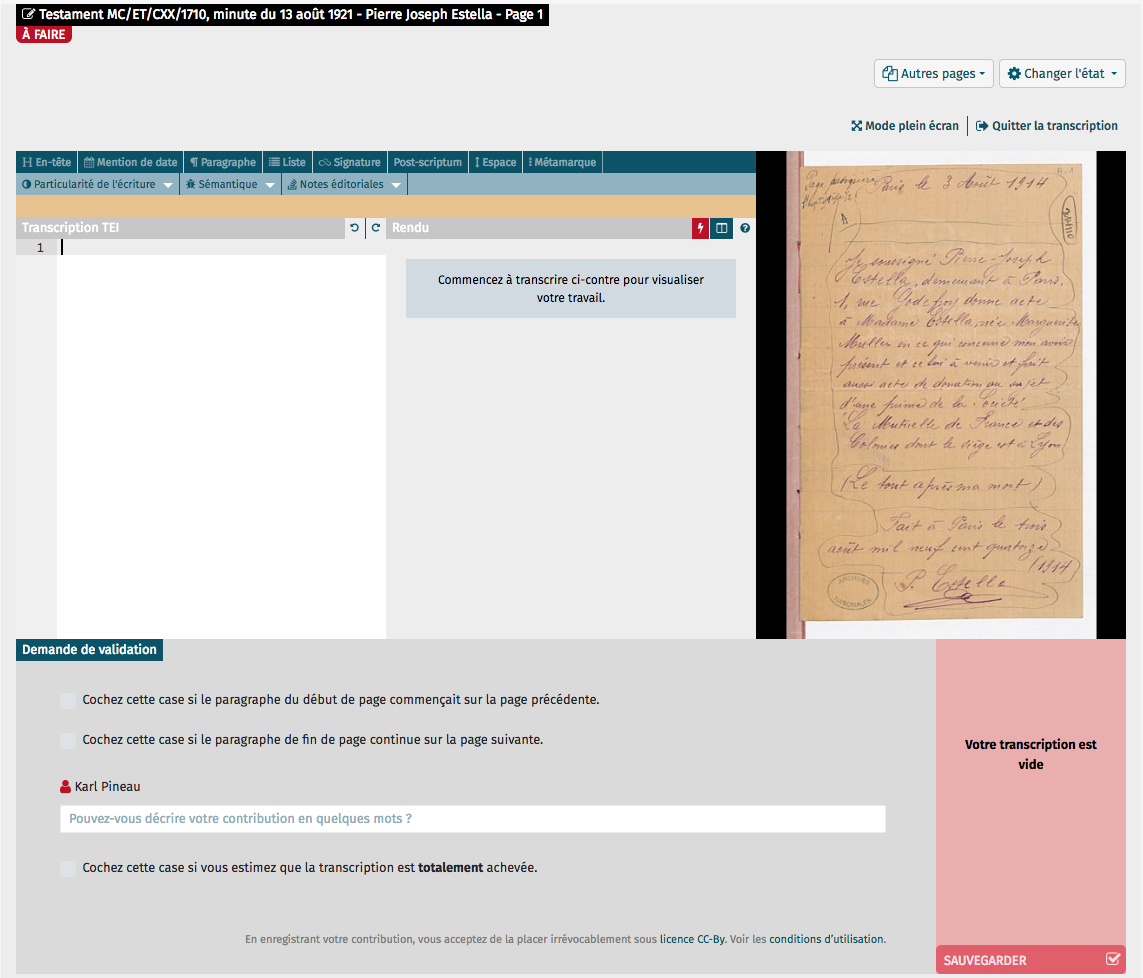 Testament MC/ET/CXX/1710, minute du 13 août 1921 - Pierre Joseph Estella - Page 1
À FAIRE
Autres pages
Changer l'état
Mode plein écran
Quitter la transcription
En-tête
Mention de date
Paragraphe
Liste
Signature
Post-scriptum
Espace
Métamarque
Particularité de l'écriture
Sémantique
Notes éditoriales
Transcription TEI
Rendu
1
Commencez à transcrire ci-contre pour visualiser
votre travail.
Paris le 3 Août 1914
A
Je soussigné Pierre-Joseph
Estella, demeurant à Paris,
1, rue Godefroy donne acte
à Madame Estella, née Marguerite
Muller en ce qui concerne mon avoir
présent et celui à venir et fait
aussi acte de donation au sujet
d'une prime de la Société
La Mutuelle de France et des
Colonies dont le siège est à Lyon
(Le tout après ma mort)
Fait à Paris le trois
août mil neuf cent quatorze
(1914)
P. Estella
ARCHIVES
NATIONALES
Demande de validation
Cochez cette case si le paragraphe du début de page commençait sur la page précédente.
Cochez cette case si le paragraphe de fin de page continue sur la page suivante.
Karl Pineau
Pouvez-vous décrire votre contribution en quelques mots ?
Cochez cette case si vous estimez que la transcription est totalement achevée.
En enregistrant votre contribution, vous acceptez de la placer irrévocablement sous licence CC-By. Voir les conditions d'utilisation.
Votre transcription est
vide
SAUVEGARDER